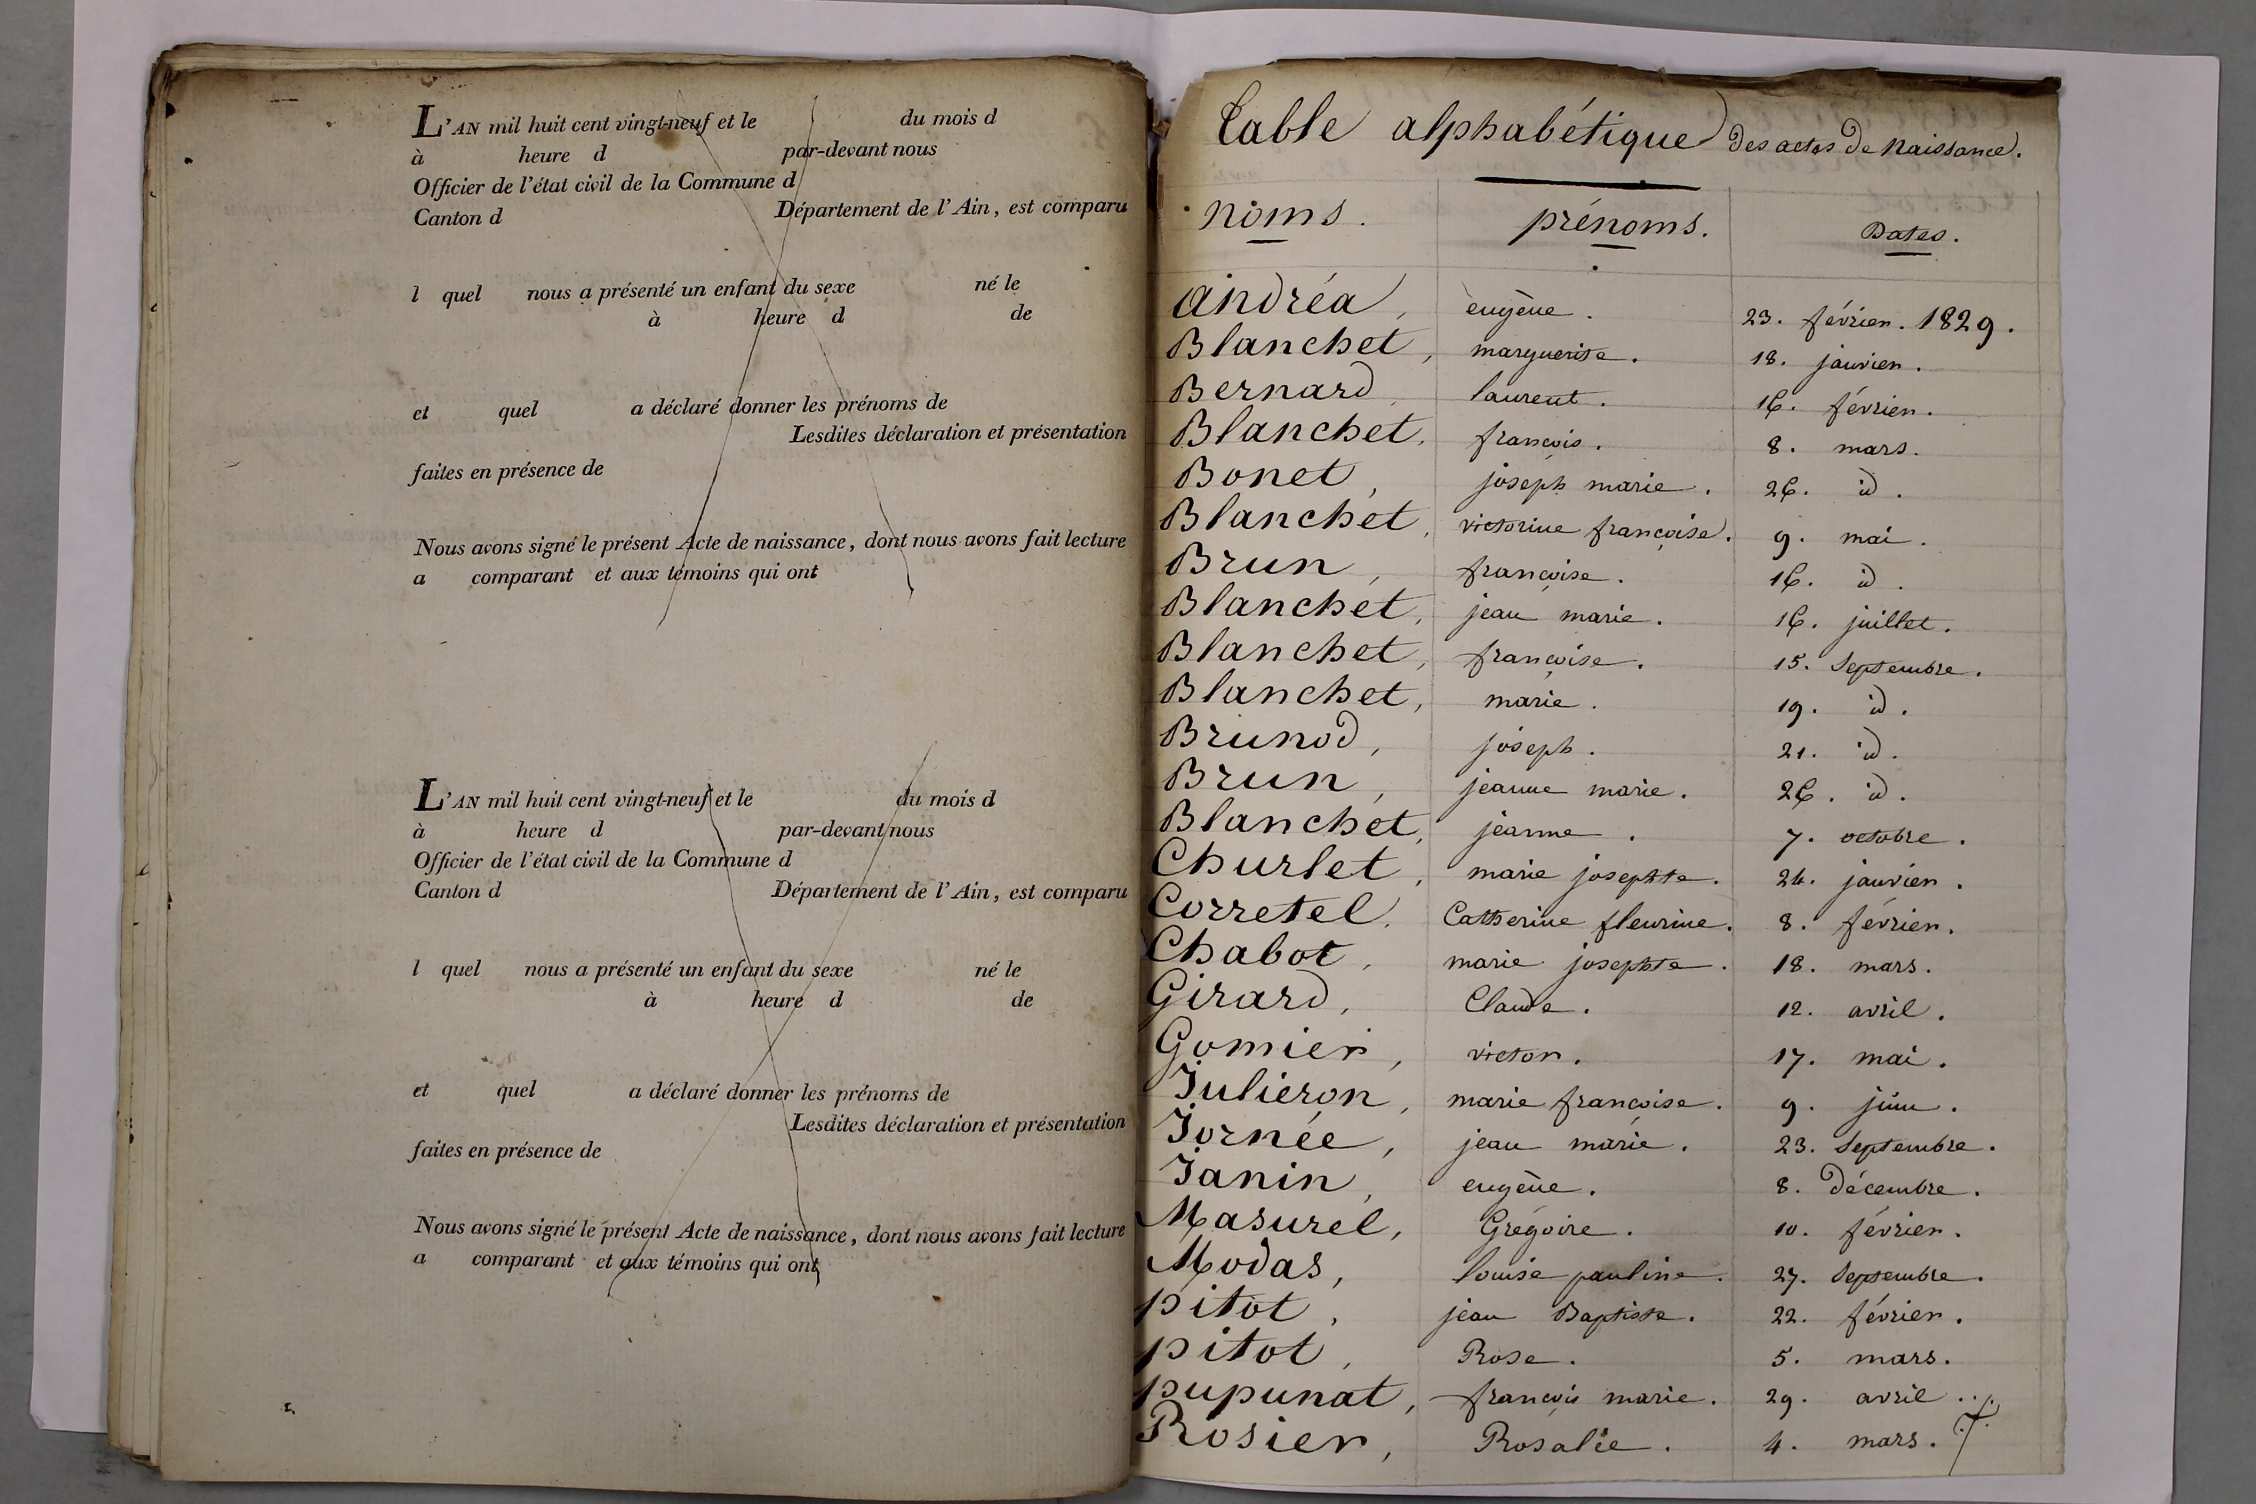 L'AN mil huit cent vingt-neuf et le du mois d
à heure d par-devant nous
Officier de l'état civil de la Commune d
Canton d Département de l'Ain, est comparu
l quel nous a présenté un enfant du sexe né le
à heure d de
et quel a déclaré donner les prénoms de
Lesdites déclaration et présentation
faites en présence de
Nous avons signé le présent Acte de naissance, dont nous avons fait lecture
a comparant et aux témoins qui ont
L'AN mil huit cent vingt-neuf et le du mois d
à heure d par-devant nous
Officier de l'état civil de la Commune d
Canton d Département de l'Ain, est comparu
l quel nous a présenté un enfant du sexe né le
à heure d de
et quel a déclaré donner les prénoms de
Lesdites déclaration et présentation
faites en présence de
Nous avons signé le présent Acte de naissance, dont nous avons fait lecture
a comparant et aux témoins qui ont
Table alphabétique des actes de naissance.
noms. prénoms. Dates.
andréa, eugène. 23. février. 1829.
Blanchet, marguerite. 18. janvier.
Bernard, laurent. 16. février.
Blanchet, françois. 8. mars.
Bonet, joseph marie. 26. id.
Blanchet, victorine françoise. 9. mai.
Brun, françoise. 16. id.
Blanchet, jean marie. 16. juillet.
Blanchet, françoise. 15. Septembre.
Blanchet, marie. 19. id.
Brunod, joseph. 21. id.
Brun, jeanne marie. 26. id.
Blanchet, jeanne. 7. octobre.
Churlet, marie josephte. 24. janvier.
Corretel, Catherine fleurine. 8. février.
Chabot, marie josephte. 18. mars.
Girard, Claude. 12. avril.
Gomier, victor. 17. mai.
Julieron, marie françoise. 9. juin.
Jornée, jean marie. 23. Septembre.
Janin, eugène. 8. décembre.
Masurel, Grégoire. 10. février.
Modas, louise pauline. 27. Septembre.
pitot, jean Baptiste. 22. février.
pitot, Rose. 5. mars.
pupunat, françois marie. 29. avril.
Rosier, Rosalie. 4. mars.